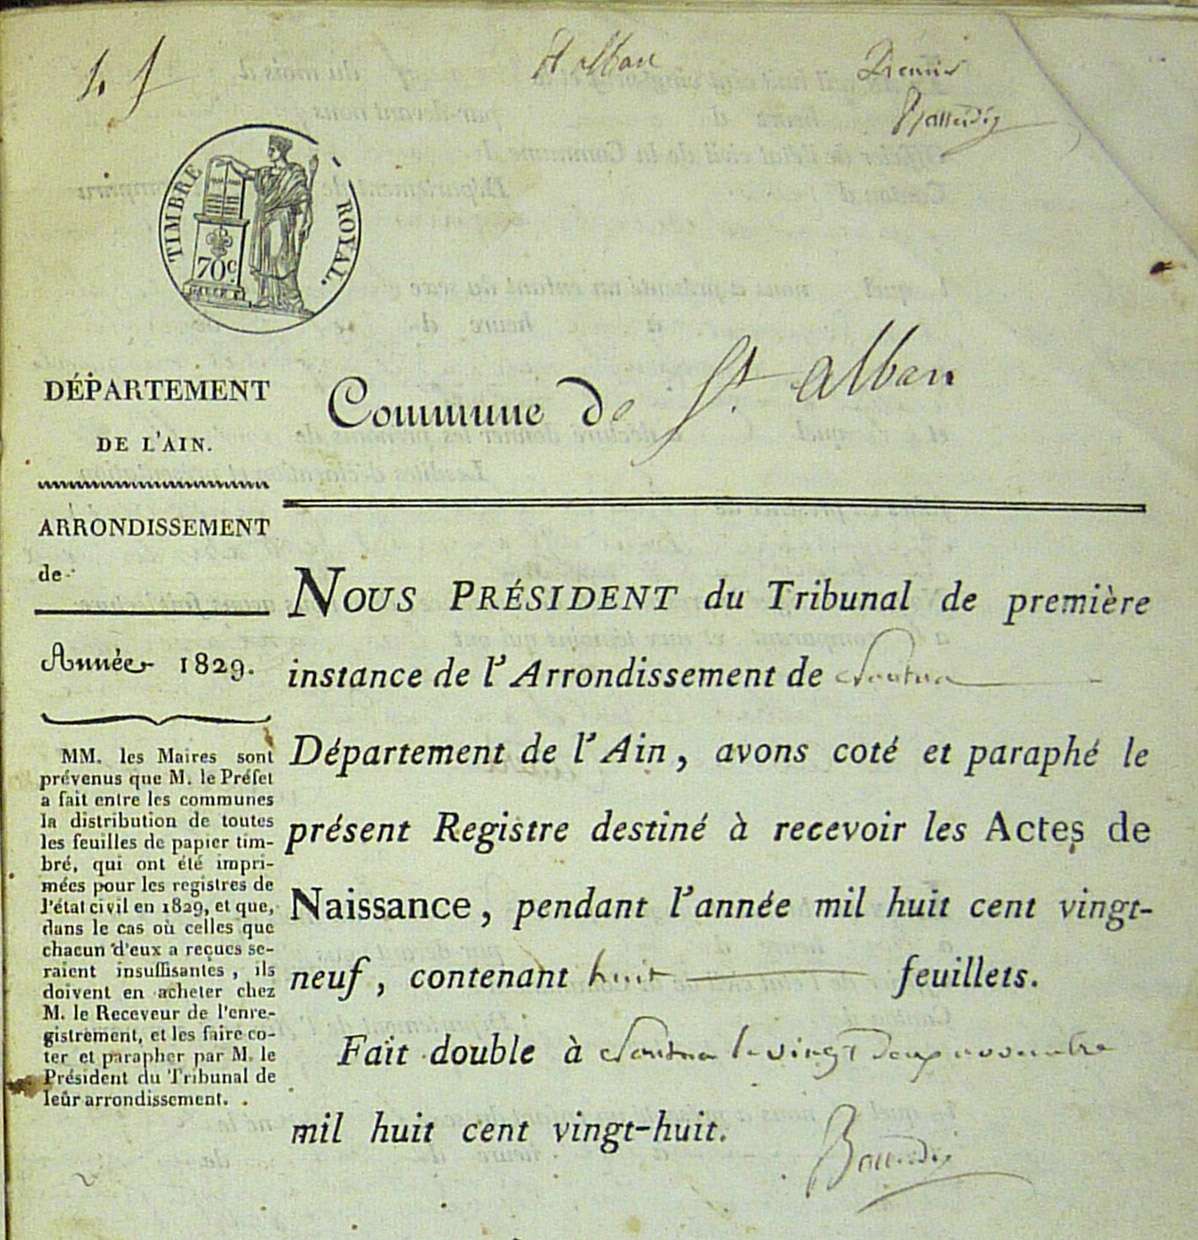 St alban
Premier
TIMBRE ROYAL.
70 c.
DÉPARTEMENT
DE L'AIN.
ARRONDISSEMENT
de
Année 1829.
MM. les Maires sont
prévenus que M. le Préfet
a fait entre les communes
la distribution de toutes
les feuilles de papier tim-
bré, qui ont été impri-
mées pour les registres de
l'état civil en 1829, et que,
dans le cas où celles que
chacun d'eux a reçues se-
raient insuffisantes, ils
doivent en acheter chez
M. le Receveur de l'enre-
gistrement, et les faire co-
ter et parapher par M. le
Président du Tribunal de
leur arrondissement.
Commune de St. alban
NOUS PRÉSIDENT du Tribunal de première
instance de l'Arrondissement de Nantua
Département de l'Ain, avons coté et paraphé le
présent Registre destiné à recevoir les Actes de
Naissance, pendant l'année mil huit cent vingt-
neuf, contenant huit feuillets.
Fait double à Nantua le vingt deux novembre
mil huit cent vingt-huit.